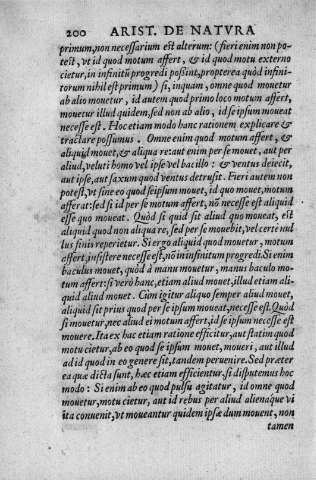 200 ARIST. DE NATVRA
primum, non necessarium est alterum: (fieri enim non po-
test, vt id quod motum affert, & id quod motu externo
cietur, in infinitũ progredi possint, propterea quòd infini-
torum nihil est primum) si, inquam, omne quod mouetur
ab alio mouetur, id autem quod primo loco motum affert,
mouetur illud quidem, sed non ab alio, id se ipsum moueat
necesse est. Hoc etiam modo hanc rationem explicare &
tractare possumus. Omne enim quod motum affert, &
aliquid mouet, & aliqua re: aut enim per se mouet, aut per
aliud, veluti homo vel ipse vel bacillo: & ventus deiecit,
aut ipse, aut saxum quod ventus detrusit. Fieri autem non
potest, vt sine eo quod seipsum mouet, id quo mouet, motum
afferat: sed si id per se motum affert, nõ necesse est aliquid
esse quo moueat. Quòd si quid sit aliud quo moueat, est
aliquid quod non aliqua re, sed per se mouebit, vel certè nul
lus finis reperietur. Si ergo aliquid quod mouetur, motum
affert, insistere necesse est, nõ in infinitum progredi. Si enim
baculus mouet, quòd à manu mouetur, manus baculo mo-
tum affert: si verò hanc, etiam aliud mouet, illud etiam ali-
quid aliud mouet. Cùm igitur aliquo semper aliud mouet,
aliquid sit prius quod per se ipsum moueat, necesse est. Quòd
si mouetur, nec aliud ei motum affert, id se ipsum necesse est
mouere. Ita ex hac etiam ratione efficitur, aut statim quod
motu cietur, ab eo quod se ipsum mouet, moueri, aut aliud
ad id quod in eo genere sit, tandem peruenire. Sed præter
ea quæ dicta sunt, hæc etiam efficientur, si disputemus hoc
modo: Si enim ab eo quod pulsu agitatur, id omne quod
mouetur, motu cietur, aut id rebus per aliud alienaque vi
ita conuenit, vt moueantur quidem ipsæ dum mouent, non
tamen